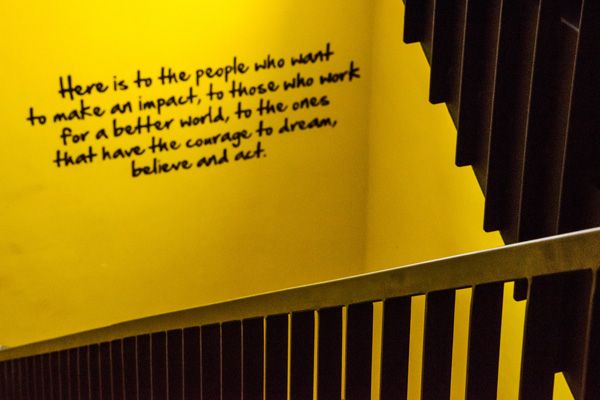 Here is to the people who want
to make an impact, to those who work
for a better world, to the ones
that have the courage to dream,
believe and act.